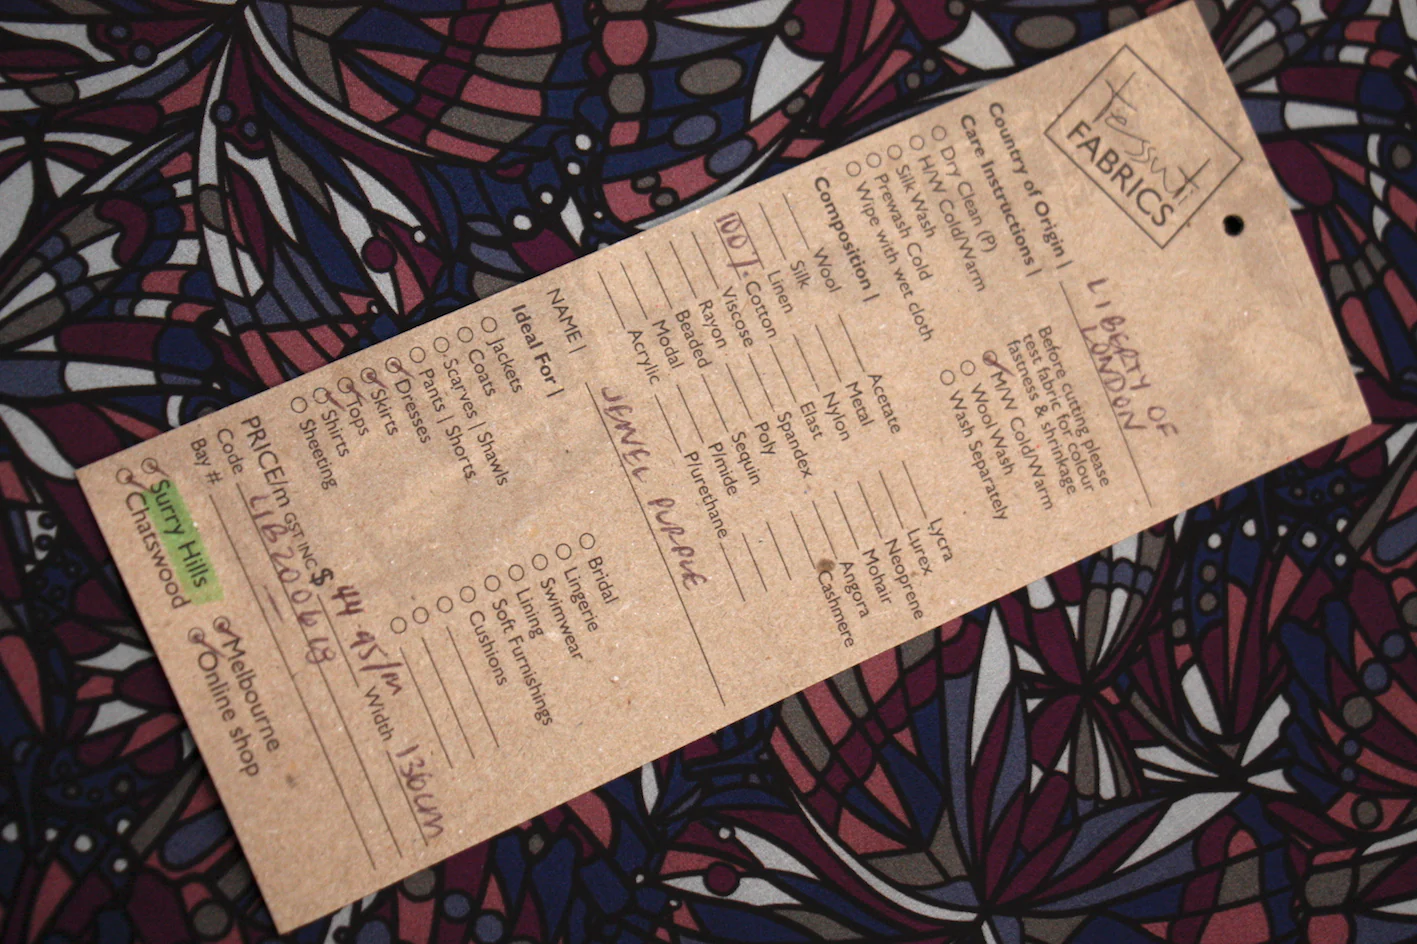 Tessuti
FABRICS
Country of Origin | LIBERTY OF
LONDON
Care Instructions |
Dry Clean (P)
H/W Cold/Warm
Silk Wash
Prewash Cold
Wipe with wet cloth
Before cutting please
test fabric for colour
fastness & shrinkage
M/W Cold/Warm
Wool Wash
Wash Separately
Composition |
Wool
Silk
Linen
100% Cotton
Viscose
Rayon
Beaded
Modal
Acrylic
Acetate
Metal
Nylon
Elast
Spandex
Poly
Sequin
P/mide
P/urethane
Lycra
Lurex
Neoprene
Mohair
Angora
Cashmere
NAME | JEWEL PURPLE
Ideal For |
Jackets
Coats
Scarves | Shawls
Pants | Shorts
Dresses
Skirts
Tops
Shirts
Sheeting
Bridal
Lingerie
Swimwear
Lining
Soft Furnishings
Cushions
PRICE/m GST INC $ 44.95/m Width 136cm
Code
Bay #
Surry Hills
Chatswood
Melbourne
Online shop